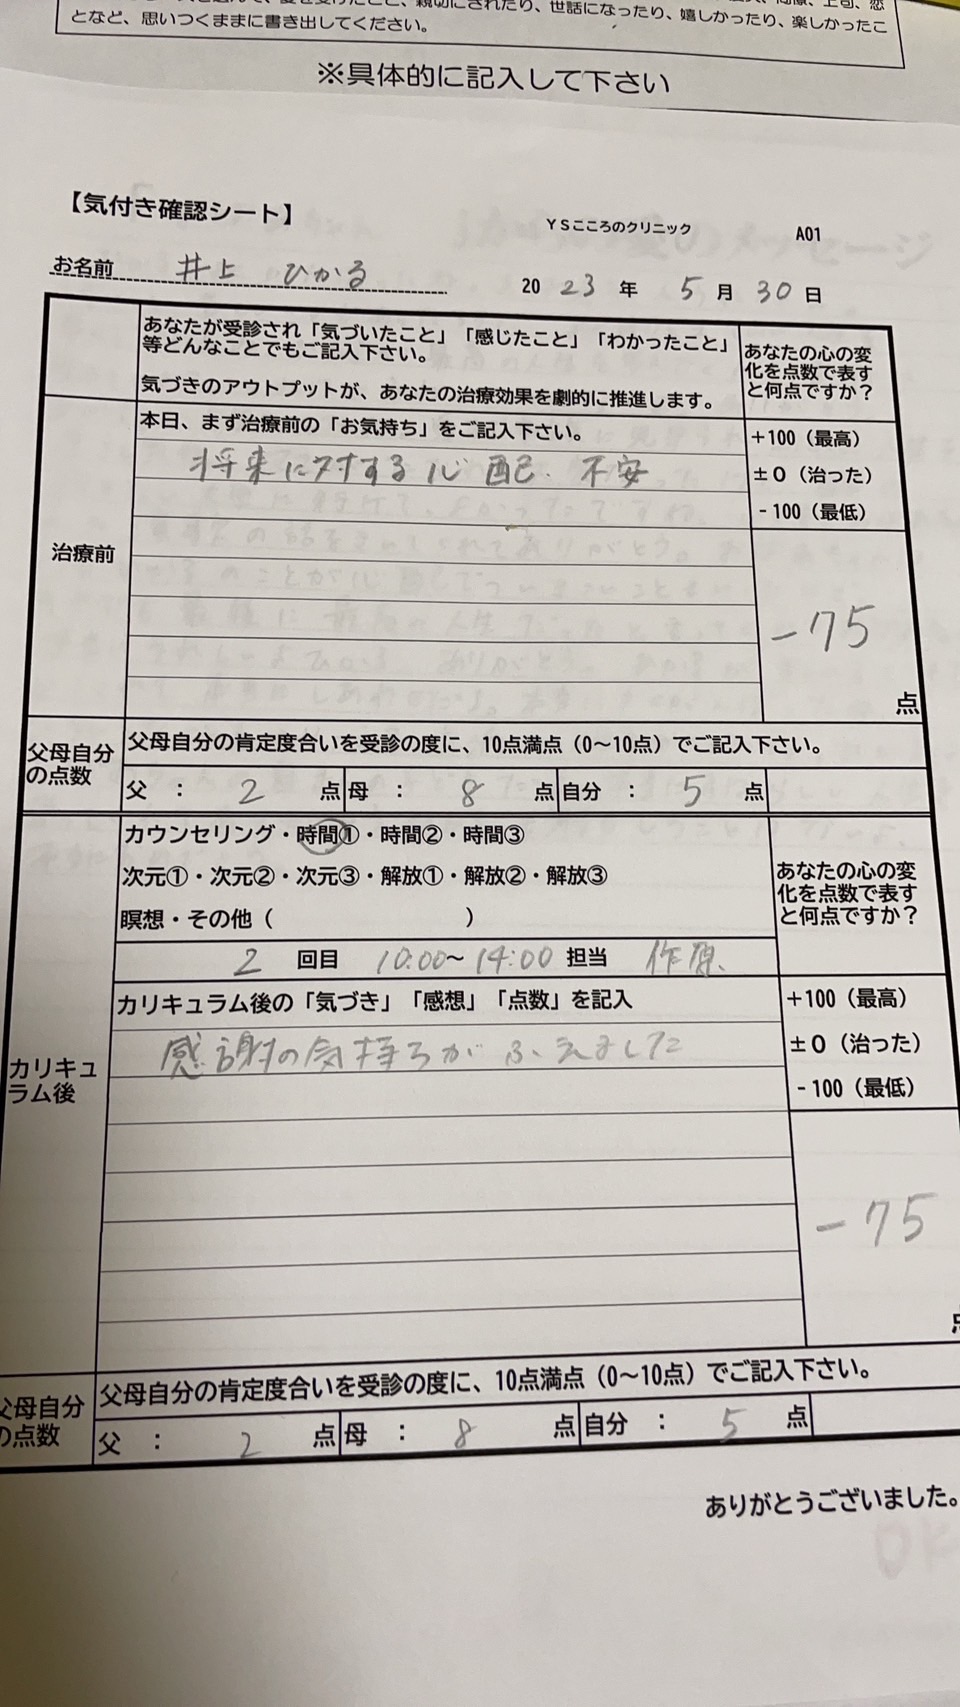 となど、思いつくままに書き出してください。
※具体的に記入して下さい
【気付き確認シート】
YSこころのクリニック
A01
お名前 井上 ひかる
2023年 5月 30日
あなたが受診され「気づいたこと」「感じたこと」「わかったこと」
等どんなことでもご記入下さい。
気づきのアウトプットが、あなたの治療効果を劇的に推進します。
あなたの心の変
化を点数で表す
と何点ですか？
治療前
本日、まず治療前の「お気持ち」をご記入下さい。
将来に対する心配、不安
+100（最高）
±0（治った）
-100（最低）
-75
点
父母自分
の点数
父母自分の肯定度合いを受診の度に、10点満点（0〜10点）でご記入下さい。
父 ： 2 点 母 ： 8 点 自分 ： 5 点
カウンセリング・時間①・時間②・時間③
次元①・次元②・次元③・解放①・解放②・解放③
瞑想・その他（ ）
2 回目 10:00〜14:00 担当 作原
あなたの心の変
化を点数で表す
と何点ですか？
カリキュ
ラム後
カリキュラム後の「気づき」「感想」「点数」を記入
感謝の気持ちがふえました
+100（最高）
±0（治った）
-100（最低）
-75
点
父母自分
の点数
父母自分の肯定度合いを受診の度に、10点満点（0〜10点）でご記入下さい。
父 ： 2 点 母 ： 8 点 自分 ： 5 点
ありがとうございました。